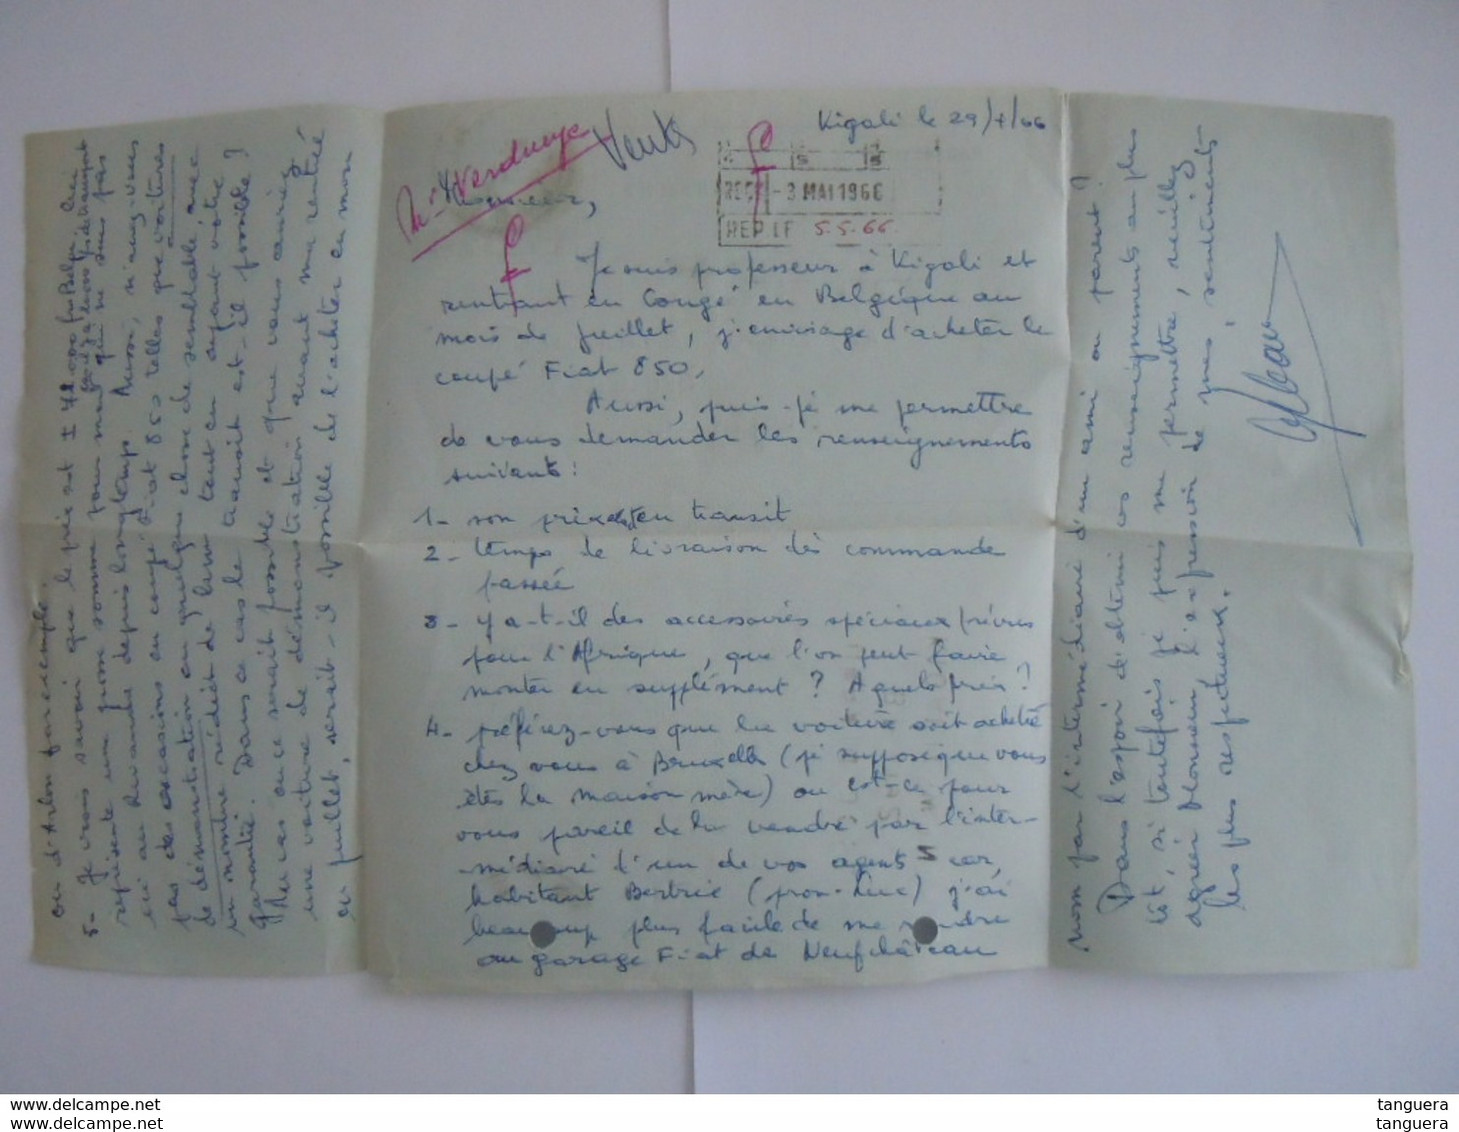 Kigali le 29/4/66
Mr Verdueye
Vente
Monsieur,
RECE -3 MAI 1966
REP LE 5.5.66
Je suis professeur à Kigali et
rentrant en congé en Belgique au
mois de juillet, j'envisage d'acheter le
coupé Fiat 850,
Aussi, puis-je me permettre
de vous demander les renseignements
suivants :
1- son prix en transit
2- temps de livraison dès commande
passée
3- y a-t-il des accessoires spéciaux prévus
pour l'Afrique, que l'on peut faire
monter en supplément ? A quels prix ?
4- préférez-vous que la voiture soit achetée
chez vous à Bruxelles (je suppose que vous
êtes la maison mère) ou est-ce pour
vous pareil de la vendre par l'inter-
médiaire d'un de vos agents car,
habitant Bertrix (prov. Lux) j'ai
beaucoup plus facile de me rendre
au garage Fiat de Neufchâteau
ou d'Arlon par exemple.
5- Je crois savoir que le prix est ± 72.000 fr Belges. Ceci
représente une grosse somme pour moi qui ne suis pas
ici au Rwanda depuis longtemps. Aussi, n'auriez-vous
pas des occasions en coupé Fiat 850 telles que voitures
de démonstration ou quelque chose de semblable, avec
un nombre réduit de kms tout en ayant votre
garantie. Dans ce cas le transit est-il possible ?
Au cas où ce serait possible et que vous auriez
une voiture de démonstration avant ma rentrée
en juillet, serait-il possible de l'acheter en mon
nom par l'intermédiaire d'un ami ou parent ?
Dans l'espoir d'obtenir ces renseignements au plus
tôt, si toutefois je puis me permettre, veuillez
agréer Monsieur, l'expression de mes sentiments
les plus respectueux.
tanguera
tanguera
www.delcampe.net
www.delcampe.net